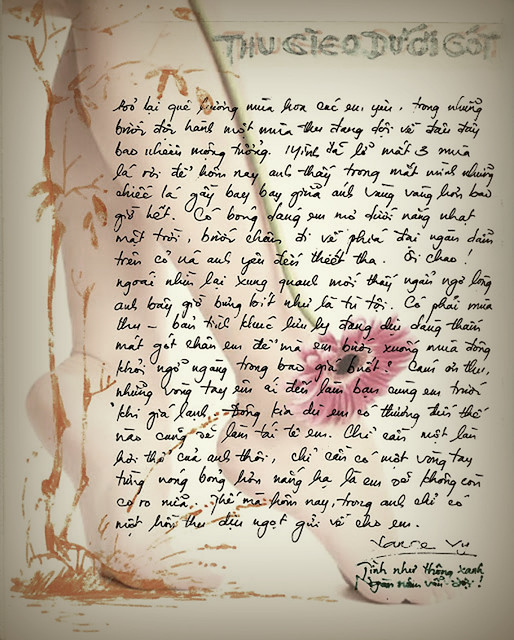 THU GIEO DƯỚI GÓT
Bỏ lại quê hương mùa hoa cúc em yêu, trong những
bước đơn hành một mùa thu đang đổi về đâu đây
bao nhiêu mộng tưởng. Mình đã lỡ mất 3 mùa
lá rồi để hôm nay anh thấy trong mắt mình những
chiếc lá gầy bay bay giữa anh vàng vàng hơn bao
giờ hết. Có bóng dáng em mơ dưới nắng nhạt
mặt trời, bước chậm đi về phía đại ngàn dẫm
trên cỏ mà anh yêu đến thiết tha. Ôi chao!
ngoái nhìn lại xung quanh mới thấy ngẩn ngơ lòng
anh bây giờ bưng bít như là tù tội. Có phải mùa
thu - bản tình khúc lưu ly đang dịu dàng thấm
mát gót chân em để mà em bước xuống mùa đông
khỏi ngỡ ngàng trong bao giá buốt? Cám ơn thu,
những vòng tay êm ái đến làm bạn cùng em trước
khi giá lạnh. Đông kia dù em có thương đến thế
nào cũng sẽ làm tái tê em. Chỉ cần một lần
hơi thở của anh thôi, chỉ cần có một vòng tay
từng nóng bỏng hơn nắng hạ là em sẽ không còn
co ro nữa. Thế mà hôm nay, trong anh chỉ có
một hồn thu dịu ngọt gửi về cho em.
Vũ
Tình như thông xanh
Ngàn năm vẫn đợi!